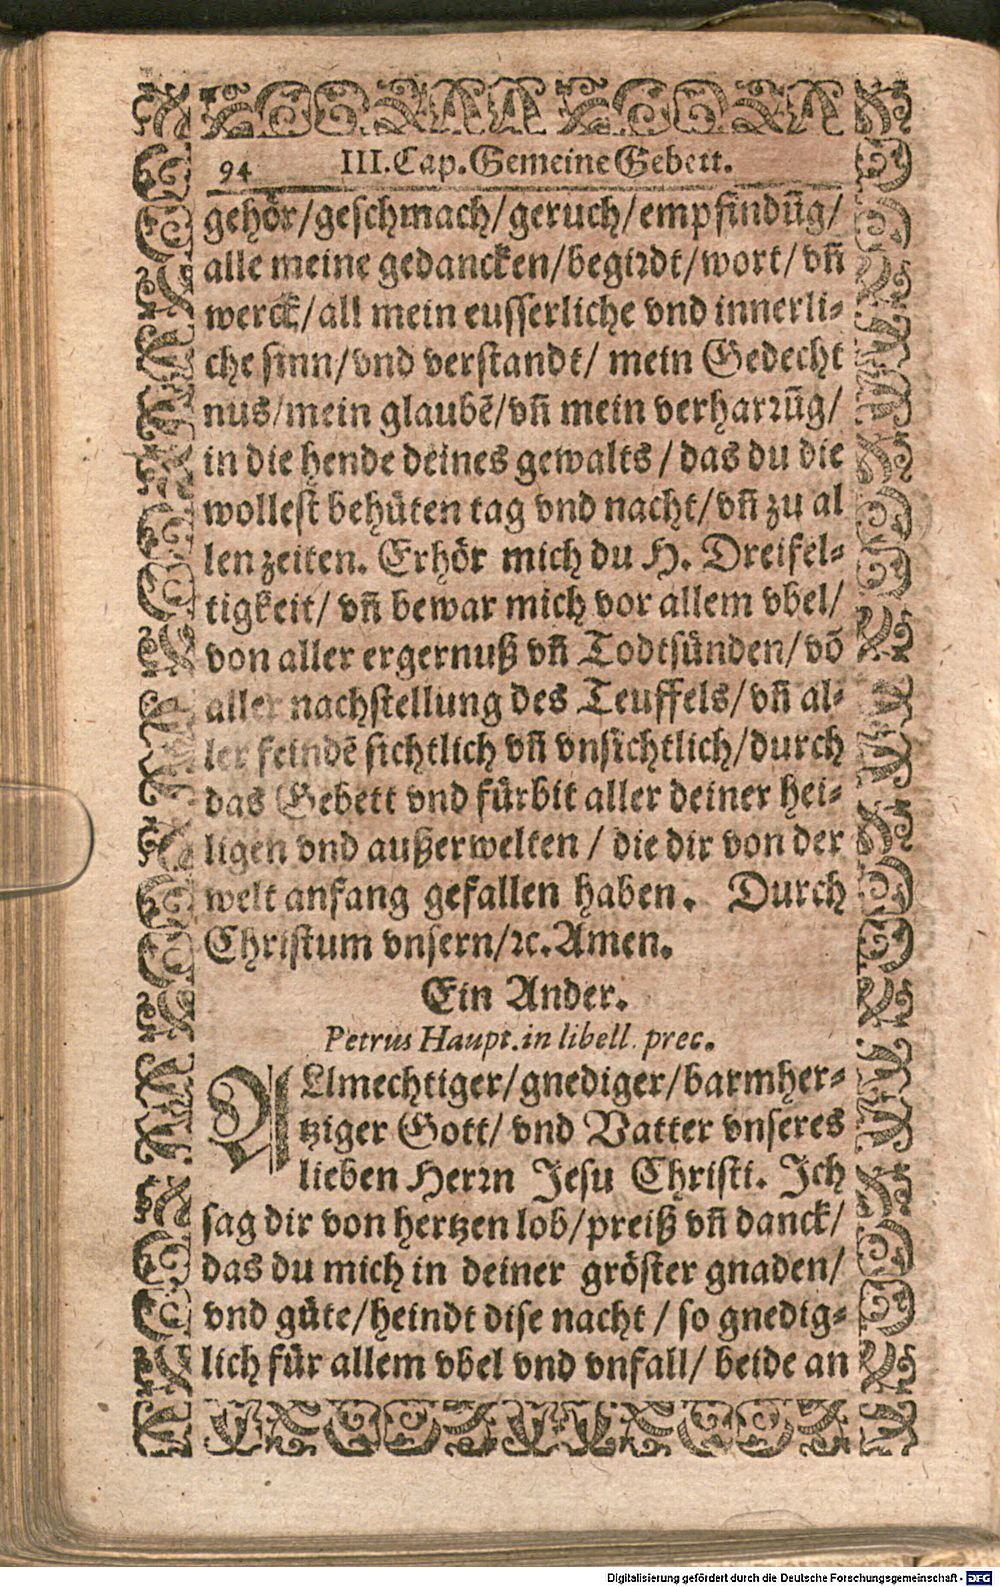 94 III. Cap. Gemeine Gebett.
gehör/geschmach/geruch/empfindūg/
alle meine gedancken/begirdt/wort/vñ
werck/all mein eusserliche vnd innerli-
che sinn/vnd verstandt/ mein Gedecht
nus/mein glaubē/vñ mein verharrūg/
in die hende deines gewalts / das du die
wollest behüten tag vnd nacht/vñ zu al
len zeiten. Erhör mich du H. Dreifel-
tigkeit/ vñ bewar mich vor allem vbel/
von aller ergernuß vñ Todtsünden/ vō
aller nachstellung des Teuffels/ vñ al-
ler feindē sichtlich vñ vnsichtlich/durch
das Gebett vnd fürbit aller deiner hei-
ligen vnd außerwelten / die dir von der
welt anfang gefallen haben. Durch
Christum vnsern/ꝛc. Amen.
Ein Ander.
Petrus Haupt. in libell. prec.
ALlmechtiger/gnediger/barmher-
tziger Gott/ vnd Vatter vnseres
lieben Herrn Jesu Christi. Ich
sag dir von hertzen lob/preiß vñ danck/
das du mich in deiner gröster gnaden/
vnd güte/heindt dise nacht / so gnedig-
lich für allem vbel vnd vnfall/ beide an
Digitalisierung gefördert durch die Deutsche Forschungsgemeinschaft - DFG